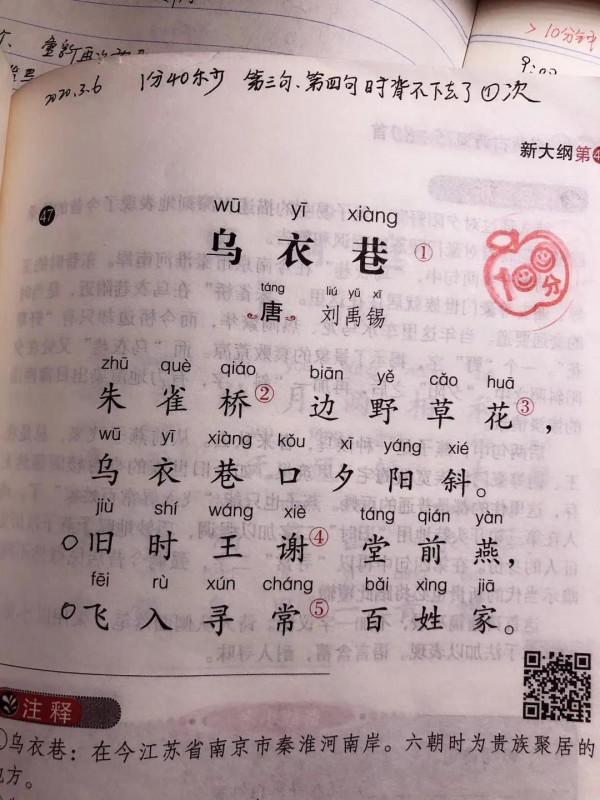 重新再次
>10分钟
2020.3.6 1分40秒 第三句、第四句时背不下去了①次
新大纲第4
47
wū yī xiàng
乌衣巷①
100分
táng liú yǔ xī
唐 刘禹锡
zhū què qiáo biān yě cǎo huā
朱雀桥②边野草花③,
wū yī xiàng kǒu xī yáng xié
乌衣巷口夕阳斜。
jiù shí wáng xiè táng qián yàn
旧时王谢④堂前燕,
fēi rù xún cháng bǎi xìng jiā
飞入寻常⑤百姓家。
注释
①乌衣巷:在今江苏省南京市秦淮河南岸。六朝时为贵族聚居的
地方。